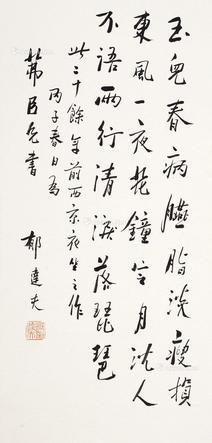 玉兒春病臙脂淡瘦損
東風一夜花鐘定月沈人
不語兩行清淚落琵琶
此二十餘年前西京夜坐之作
丙子春日為
茀居兄書
郁達夫